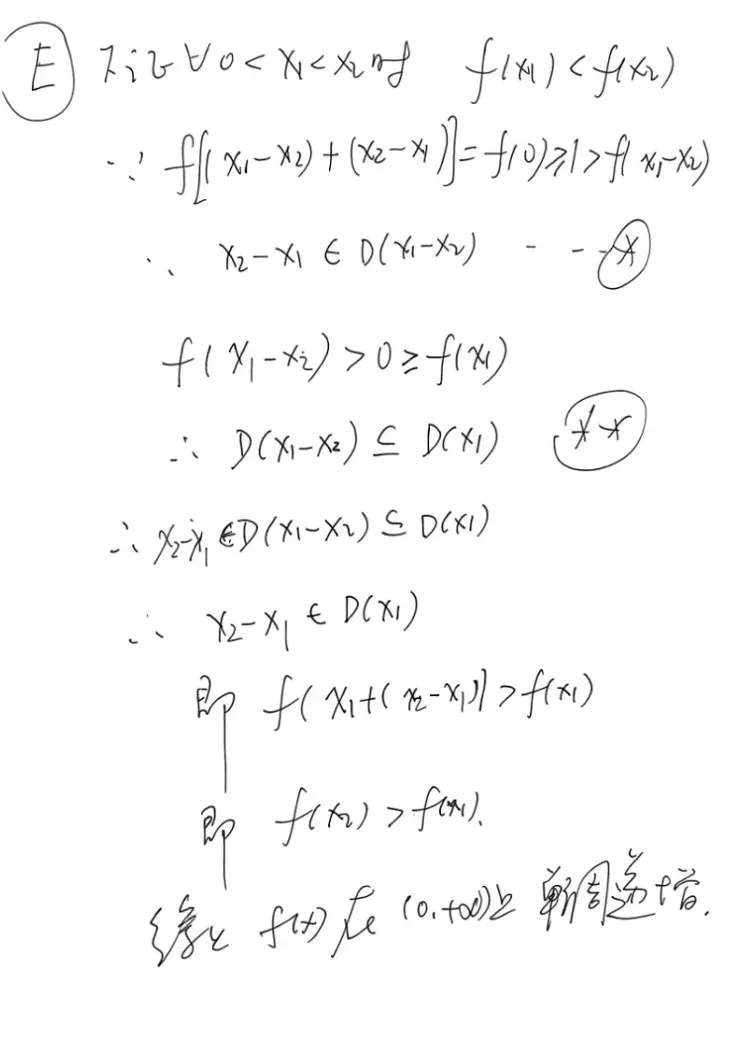 Ⓔ 只证∀0<x₁<x₂时 f(x₁)<f(x₂)
∵ f[(x₁-x₂)+(x₂-x₁)]=f(0)≥1>f(x₁-x₂)
∴ x₂-x₁∈D(x₁-x₂) - - ⊛
f(x₁-x₂)>0≥f(x₁)
∴ D(x₁-x₂)⊆D(x₁) (**)
∴ x₂-x₁∈D(x₁-x₂)⊆D(x₁)
∴ x₂-x₁∈D(x₁)
即 f(x₁+(x₂-x₁))>f(x₁)
即 f(x₂)>f(x₁).
综上 f(x)在(0,+∞)上单调递增.